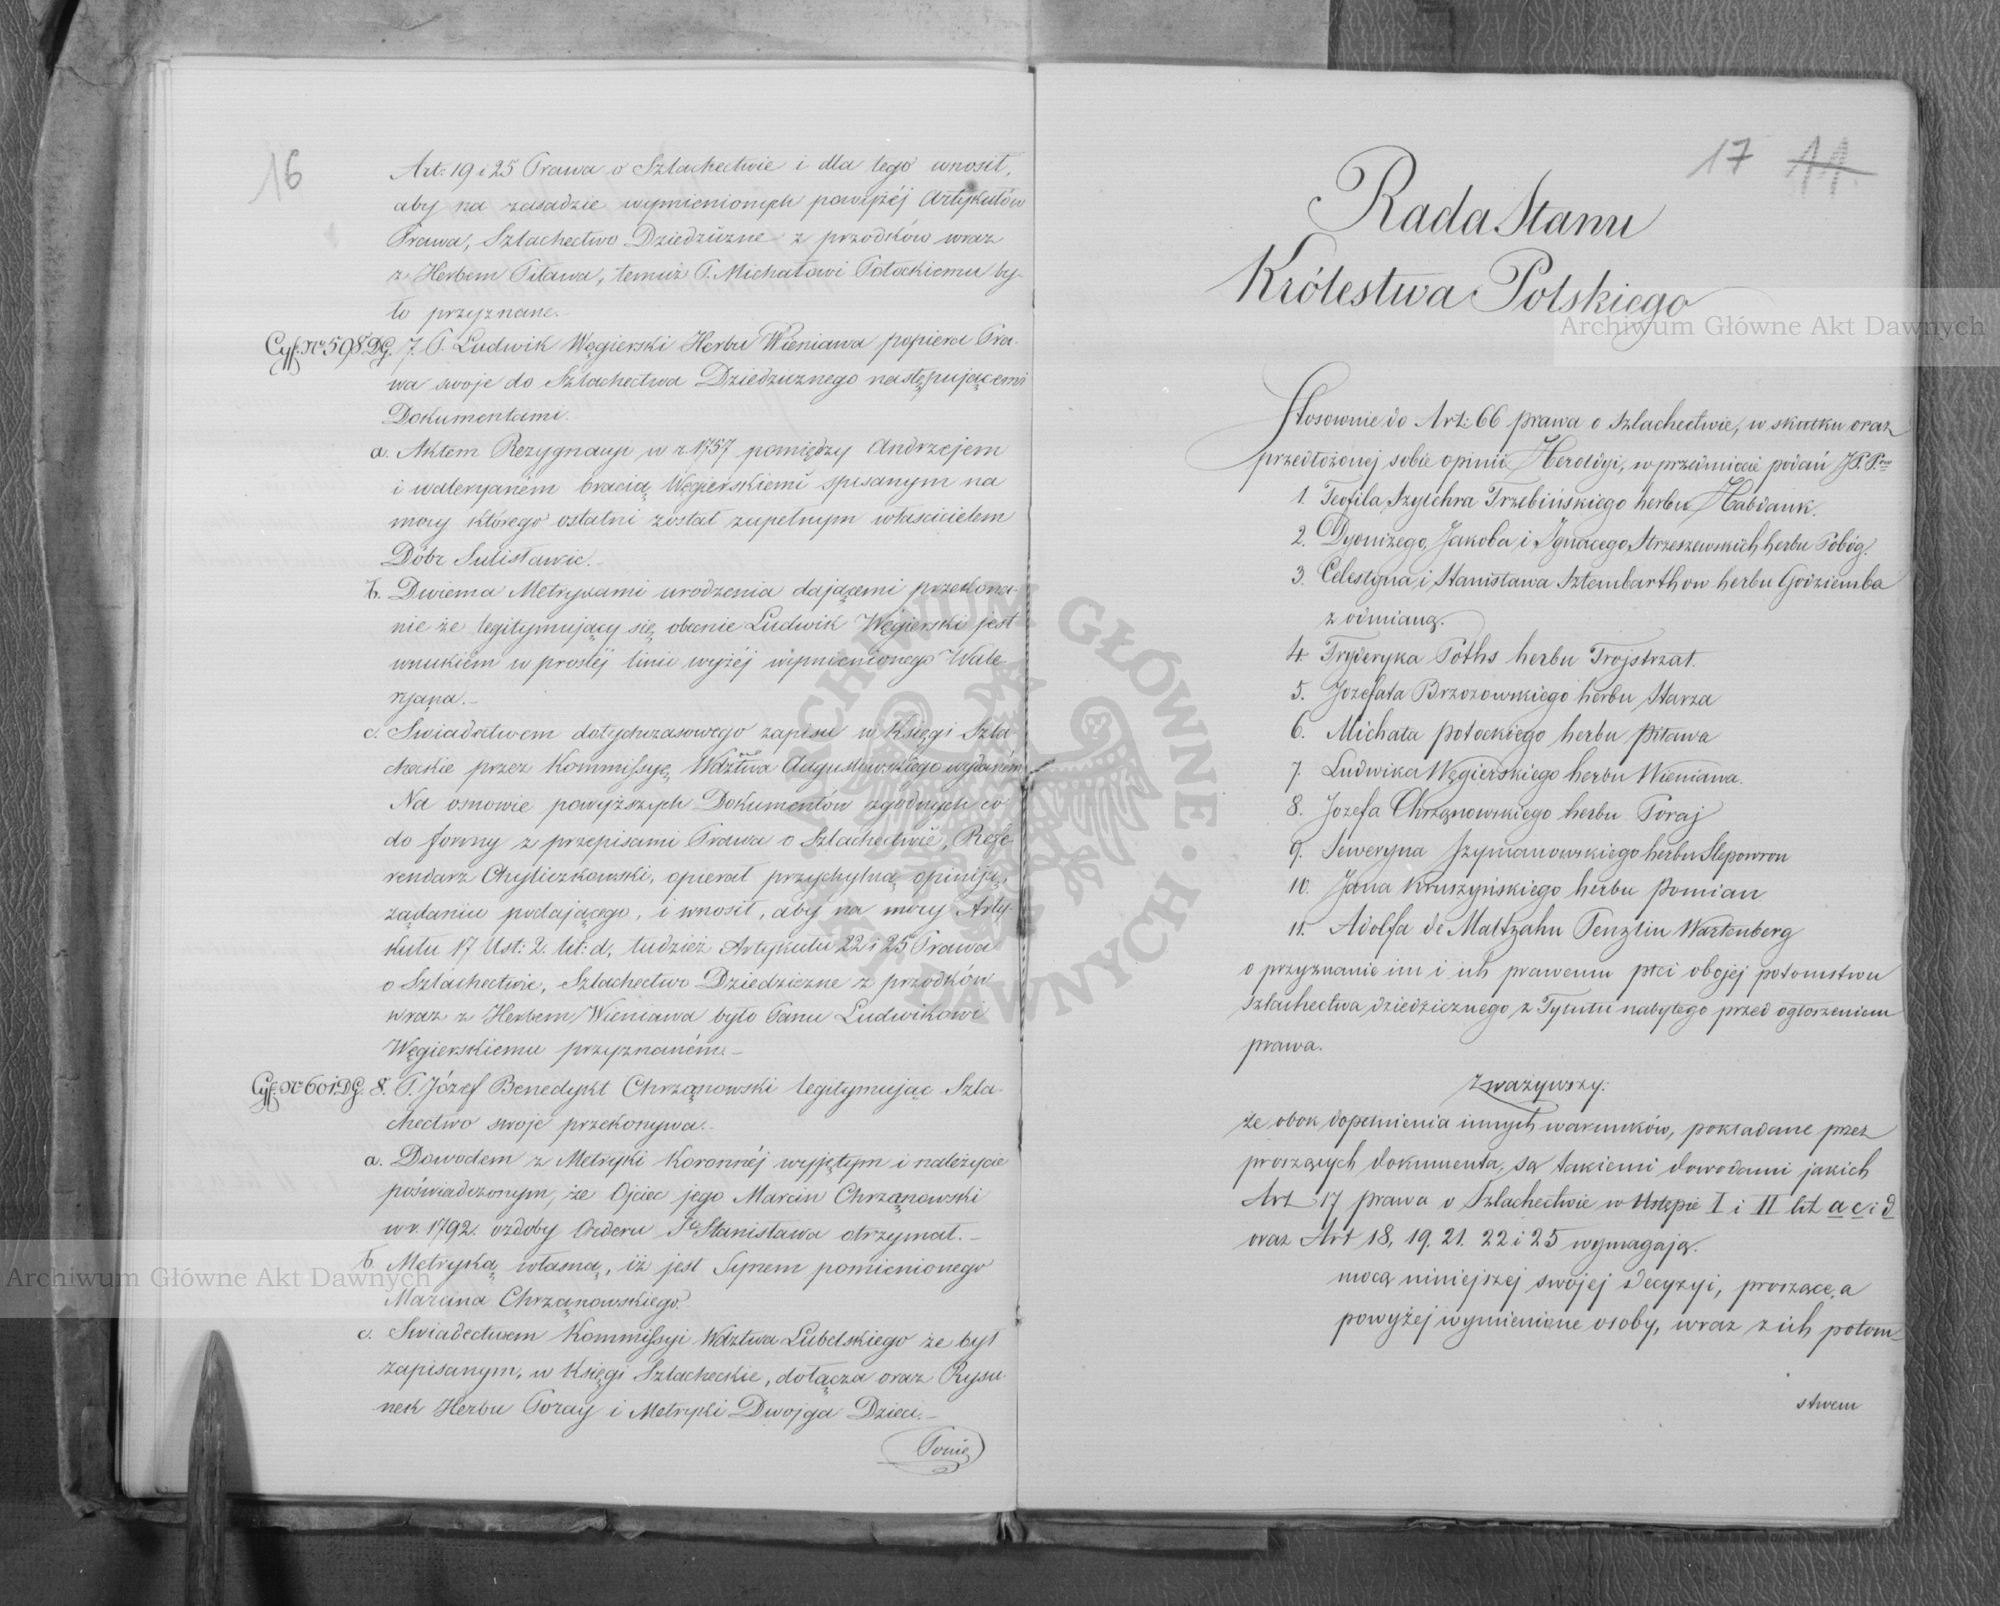 16
Art: 19 i 25 Prawa o Szlachectwie i dla tego wnosił,
aby na zasadzie wymienionych powyżéj Artykułów
Prawa, Szlachectwo Dziedziczne z przodków wraz
z Herbem Pilawa, temuż P. Michałowi Potockiemu by-
ło przyznane.-
Cyf: No 598 DG. 7. P. Ludwik Węgierski Herbu Wieniawa popiera Pra-
wa swoje do Szlachectwa Dziedzicznego następującemi
Dokumentami.
a. Aktem Rezygnacyi w r. 1757 pomiędzy Andrzejem
i Waleryaném bracią Węgierskiemi spisanym na
mocy którego ostatni został zupełnym właścicielem
Dóbr Sulisławic.-
b. Dwiema Metrykami urodzenia dającemi przekona-
nie że legitymujący się obecnie Ludwik Węgierski jest
wnukiem w prostéj linii wyżéj wymienionego Wale-
ryana.-
c. Swiadectwem dotychczasowego zapisu w Księgi Szla-
checkie przez Kommissyę Wdztwa Augustowskiego wydaném
Na osnowie powyższych Dokumentów zgodnych co
do formy z przepisami Prawa o Szlachectwie, Refe-
rendarz Chyliczkowski, opierał przychylną opiniję,
żądaniu podającego, i wnosił, aby na mocy Arty-
kułu 17 Ust: 2. lit: d, tudzież Artykułu 22 i 25 Prawa
o Szlachectwie, Szlachectwo Dziedziczne z przodków
wraz z Herbem Wieniawa było Panu Ludwikowi
Węgierskiemu przyznaném.-
Cyf: No 601 DG. 8. P. Józef Benedykt Chrzanowski legitymując Szla-
chectwo swoje przekonywa.-
a. Dowodem z Metryki Koronnéj wyjętym i należycie
poświadczonym, że Ojciec jego Marcin Chrzanowski
w r. 1792. ozdoby Orderu Sgo Stanisława otrzymał.-
b. Metryką własną, iż jest Synem pomienionego
Marcina Chrzanowskiego.
c. Swiadectwem Kommissyi Wdztwa Lubelskiego że był
zapisanym, w Księgi Szlacheckie, dołącza oraz Rysu-
nek Herbu Poray i Metryki Dwojga Dzieci.-
17 11.
Rada Stanu
Królestwa Polskiego
Stosownie do Art: 66 prawa o Szlachectwie, w skutku oraz
przedłożonej sobie opinii Heroldyi, w przedmiocie podań JP. Pów
1. Teofila Szylchra Trzebińskiego herbu Habdank.
2. Dyonizego, Jakoba i Ignacego Strzeszewskich herbu Pobóg.
3. Celestyna i Stanisława Sztembarthow herbu Godziemba
z odmianą.
4. Fryderyka Poths herbu Trojstrzał.
5. Jozefata Brzozowskiego herbu Starza
6. Michała Potockiego herbu Piława
7. Ludwika Węgierskiego herbu Wieniawa.
8. Jozefa Chrzanowskiego herbu Poraj
9. Seweryna Szymanowskiego herbu Slepowron
10. Jana Kruszyńskiego herbu Pomian
11. Adolfa de Maltzahn Penzlin Wartenberg
o przyznanie im i ich prawemu płci obojej potomstwu
Szlachectwa dziedzicznego z Tytułu nabytego przed ogłoszeniem
prawa.
Zważywszy:
że obok dopełnienia innych warunków, pokładane przez
proszących dokumenta, są takiemi dowodami jakich
Art 17 prawa o Szlachectwie w Ustępie I i II lit a c i d
oraz Art 18, 19. 21. 22 i 25 wymagają.
mocą niniejszej swojej decyzyi, proszące, a
powyżej wymienione osoby, wraz z ich potom-
stwem
Archiwum Główne Akt Dawnych
Archiwum Główne Akt Dawnych
ARCHIWUM GŁÓWNE AKT DAWNYCH